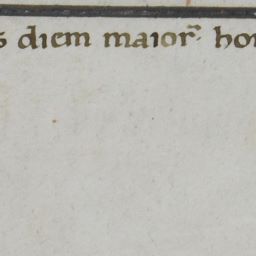 s diem maior͛ hor